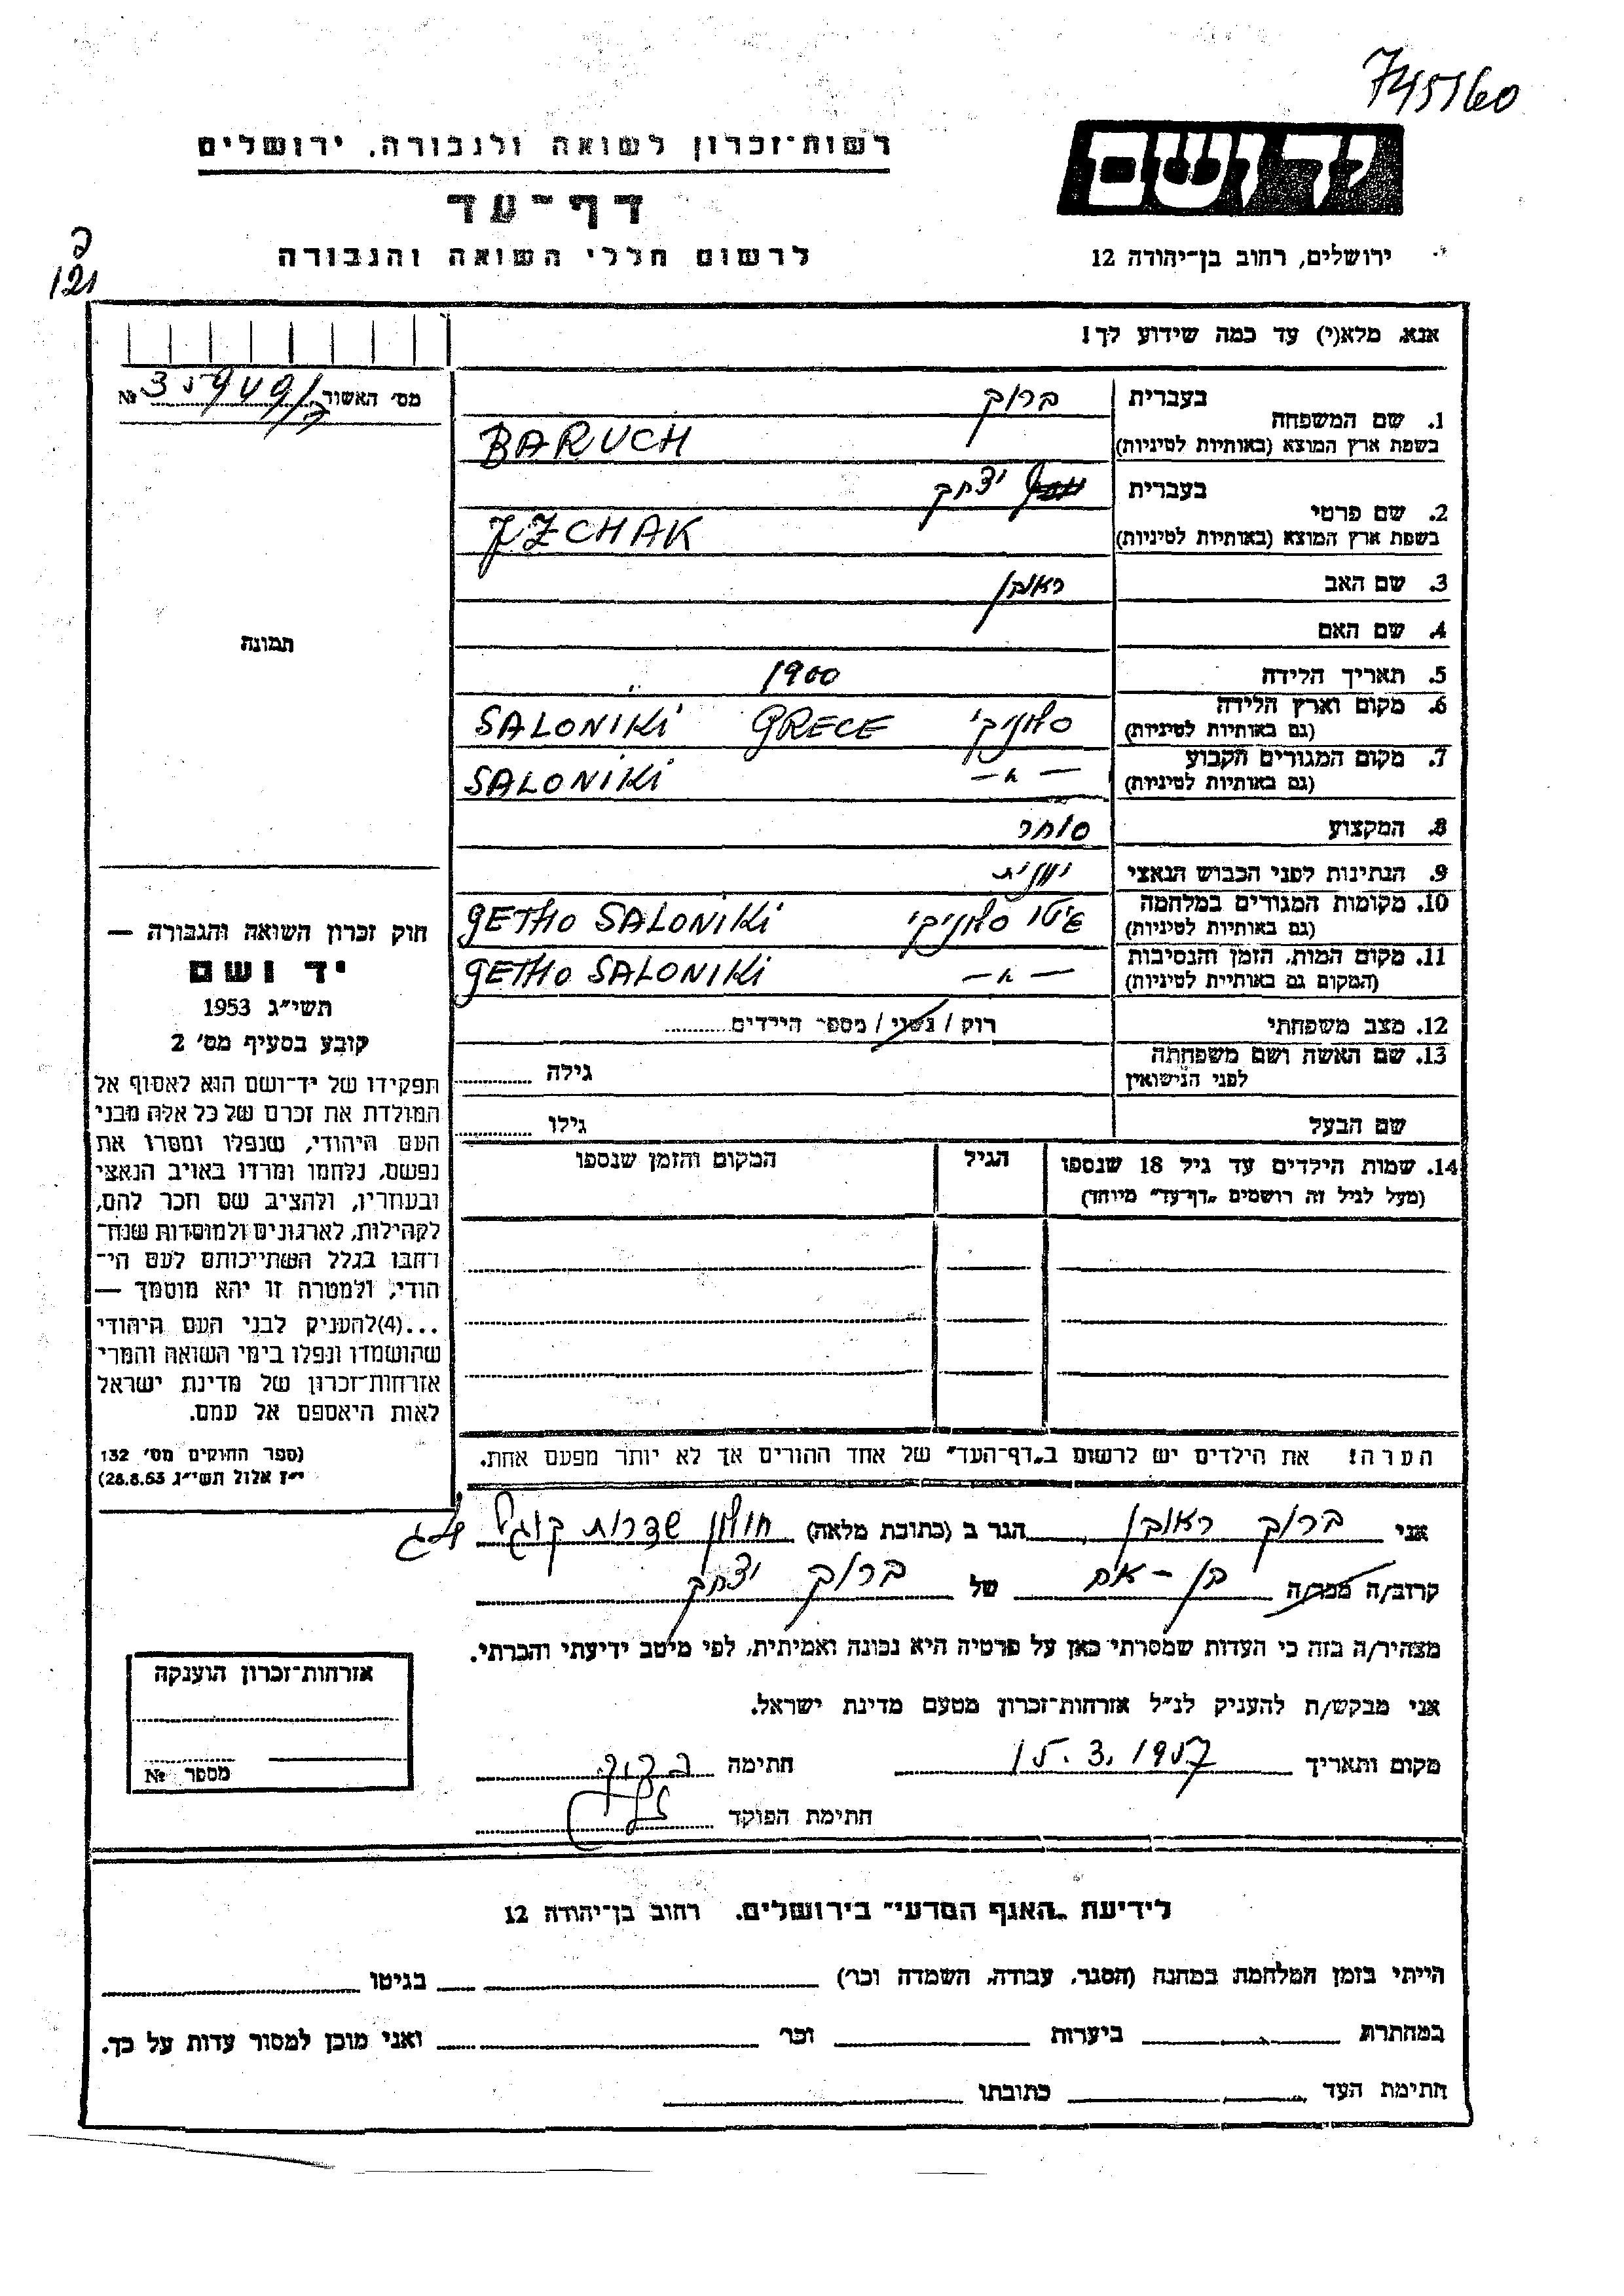 745160
רשות־זכרון לשואה ולגבורה, ירושלים
יד ושם
דף־עד
לרשום חללי השואה והגבורה
ירושלים, רחוב בן־יהודה 12
121
אנא, מלא(י) עד כמה שידוע לך!
מס׳ האשור №
1. שם המשפחה
בעברית ברוך
בשפת ארץ המוצא (באותיות לטיניות) BARUCH
2. שם פרטי
בעברית יצחק
בשפת ארץ המוצא (באותיות לטיניות) JZCHAK
3. שם האב ראובן
4. שם האם
תמונה
5. תאריך הלידה 1900
6. מקום וארץ הלידה סלוניקי GRECE SALONIKI
(גם באותיות לטיניות)
7. מקום המגורים הקבוע — " — SALONIKI
(גם באותיות לטיניות)
8. המקצוע סוחר
9. הנתינות לפני הכבוש הנאצי יוונית
10. מקומות המגורים במלחמה גיטו סלוניקי GETHO SALONIKI
(גם באותיות לטיניות)
11. מקום המות, הזמן והנסיבות — " — GETHO SALONIKI
(המקום גם באותיית לטיניות)
12. מצב משפחתי רוק / נשוי / מספר הילדים
13. שם האשה ושם משפחתה גילה
לפני הנישואין
שם הבעל גילו
14. שמות הילדים עד גיל 18 שנספו הגיל המקום והזמן שנספו
(מעל לגיל זה רושמים „דף־עד” מיוחד)
חוק זכרון השואה והגבורה —
יד ושם
תשי״ג 1953
קובע בסעיף מס׳ 2
תפקידו של יד־ושם הוא לאסוף אל
המולדת את זכרם של כל אלה מבני
העם היהודי, שנפלו ומסרו את
נפשם, נלחמו ומרדו באויב הנאצי
ובעוזריו, ולהציב שם וזכר להם,
לקהילות, לארגונים ולמוסדות שנח־
רבו בגלל השתייכותם לעם הי־
הודי, ולמטרה זו יהא מוסמך —
...(4)להעניק לבני העם היהודי
שהושמדו ונפלו בימי השואה והמרי
אזרחות־זכרון של מדינת ישראל
לאות היאספם אל עמם.
(ספר החוקים מס׳ 132
י״ז אלול תשי״ג 28.8.53)
הערה! את הילדים יש לרשום ב„דף־העד” של אחד ההורים אך לא יותר מפעם אחת.
אני ברוך ראובן הגר ב (כתובת מלאה) חולון שדרות קוגל
קרוב/ה מכר/ה בן - אח של ברוך יצחק
מצהיר/ה בזה כי העדות שמסרתי כאן על פרטיה היא נכונה ואמיתית, לפי מיטב ידיעתי והכרתי.
אני מבקש/ת להעניק לנ״ל אזרחות־זכרון מטעם מדינת ישראל.
מקום ותאריך 15.3.1957 חתימה ברוך
חתימת הפוקד
אזרחות־זכרון הוענקה
מספר №
לידיעת „האגף המדעי” בירושלים, רחוב בן־יהודה 12
הייתי בזמן המלחמה במחנה (הסגר, עבודה, השמדה וכו׳) בגיטו
במחתרת ביערות וכו׳ ואני מוכן למסור עדות על כך.
חתימת העד כתובתו